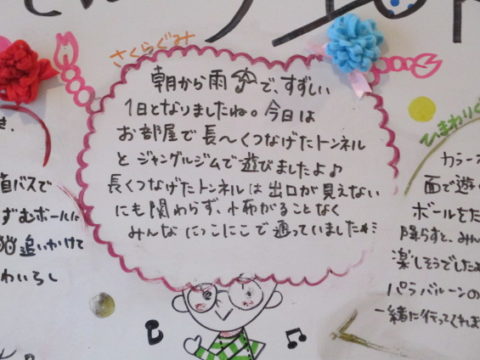 さくらぐみ
朝から雨☂で、すずしい
1日となりましたね。今日は
お部屋で長〜くつなげたトンネル
とジャングルジムで遊びましたよ♪
長くつなげたトンネルは出口が見えない
にも関わらず、怖がることなく
みんなにっこにこで通っていました
ひまわりぐ
カラー
面で遊
ボールをた
降らすと、みん
楽しそうでした
パラバルーンの
一緒に行ってくれま
バスで
ずむボールに
追いかけて
わいらし